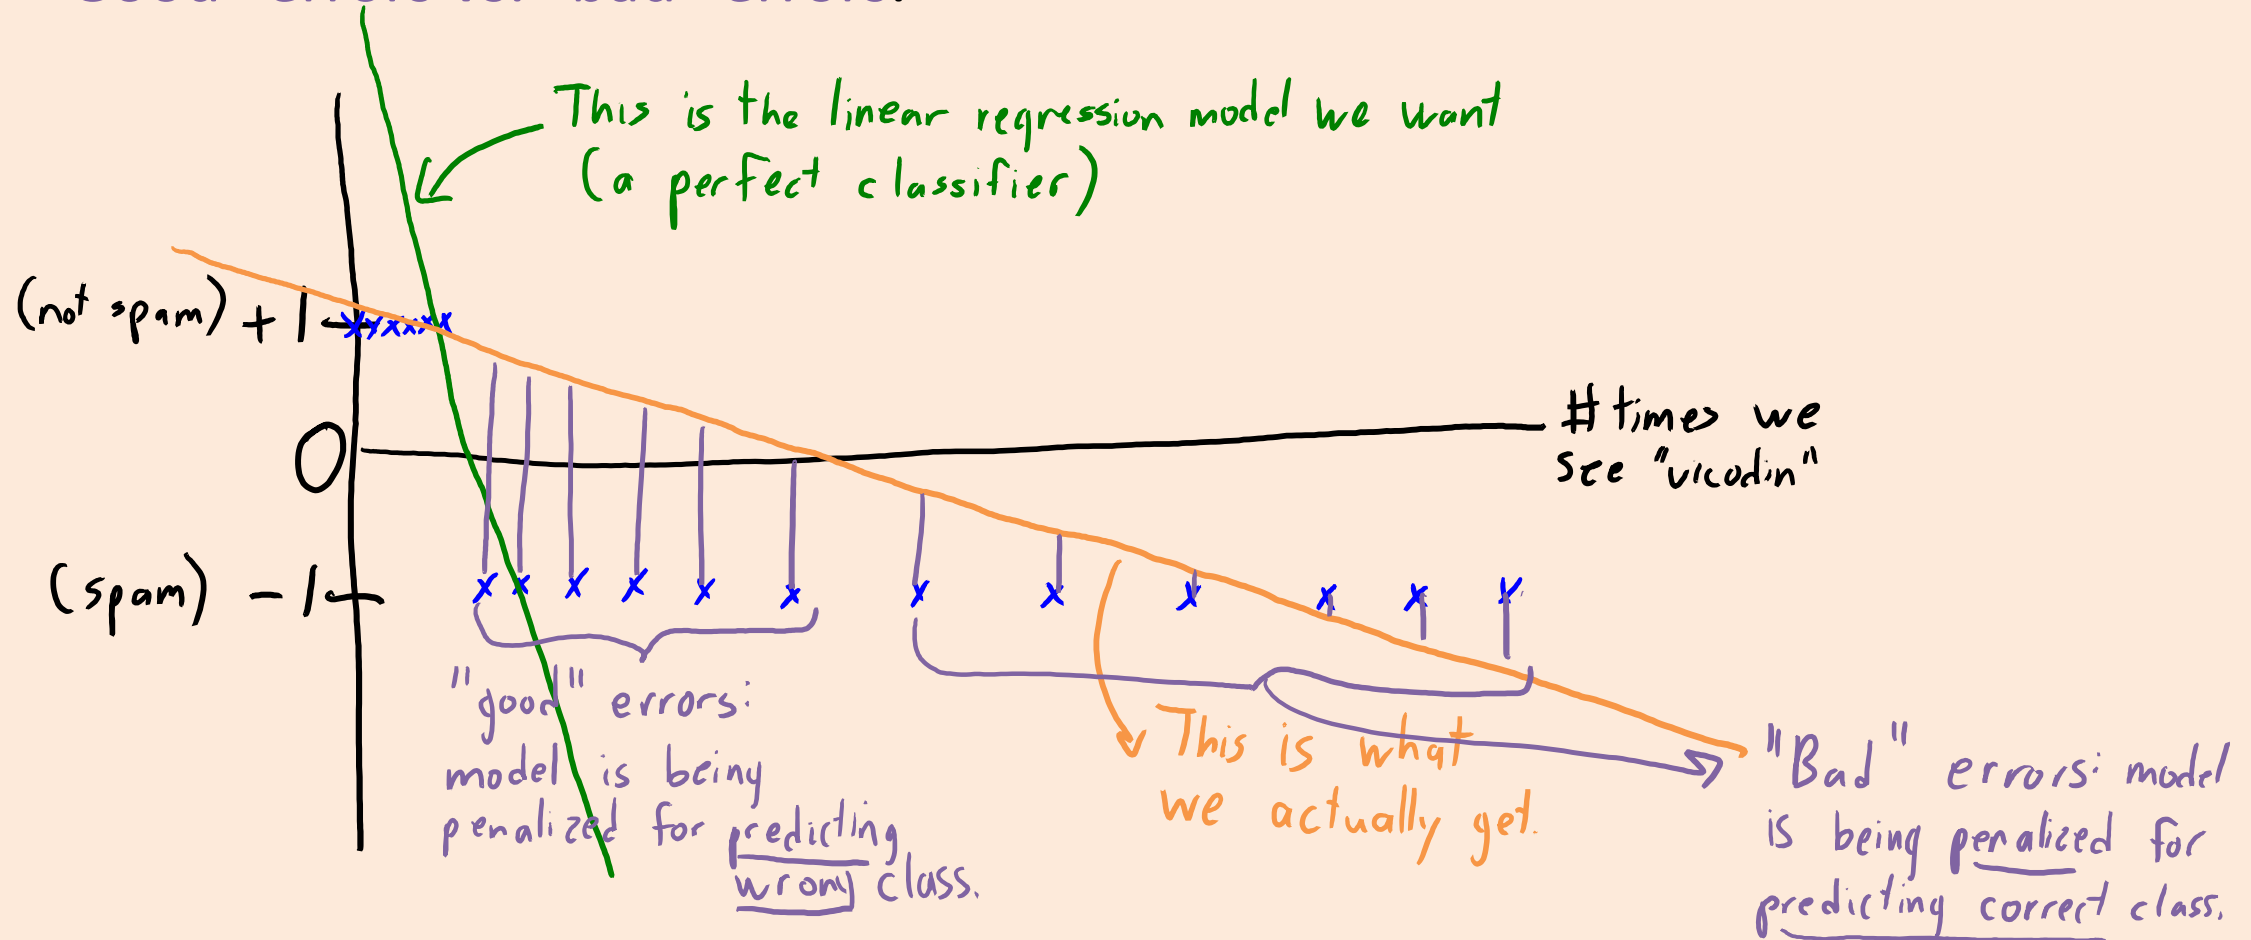 Good errors vs. bad errors.
This is the linear regression model we want
(a perfect classifier)
(not spam) +1
0
# times we
see "vicodin"
(spam) -1
"good" errors:
model is being
penalized for predicting
wrong class.
This is what
we actually get.
"Bad" errors: model
is being penalized for
predicting correct class.